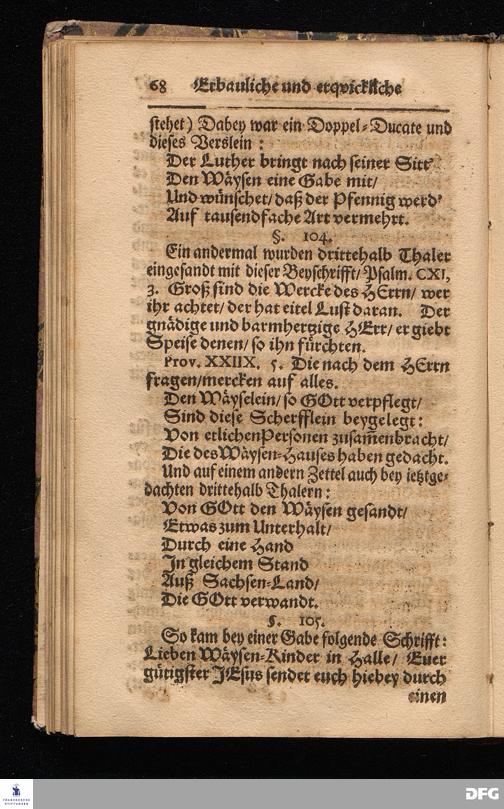 68 Erbauliche und erqvickliche
stehet) Dabey war ein Doppel-Ducate und
dieses Verslein :
Der Luther bringt nach seiner Sitt
Den Wäysen eine Gabe mit/
Und wünschet/ daß der Pfennig werd'
Auf tausendfache Art vermehrt.
§. 104.
Ein andermal wurden drittehalb Thaler
eingesandt mit dieser Beyschrifft/ Psalm. CXI,
3. Groß sind die Wercke des HErrn/ wer
ihr achtet/ der hat eitel Lust daran. Der
gnädige und barmhertzige HErr/ er giebt
Speise denen/ so ihn fürchten.
Prov. XXIIX. 5. Die nach dem HErrn
fragen/ mercken auf alles.
Den Wäyselein/ so GOtt verpflegt/
Sind diese Scherfflein beygelegt:
Von etlichen Personen zusam̃enbracht/
Die des Wäysen-Hauses haben gedacht.
Und auf einem andern Zettel auch bey ietztge-
dachten drittehalb Thalern:
Von GOtt den Wäysen gesandt/
Etwas zum Unterhalt/
Durch eine Hand
In gleichem Stand
Auß Sachsen-Land/
Die GOtt verwandt.
§. 105.
So kam bey einer Gabe folgende Schrifft:
Lieben Wäysen-Kinder in Halle/ Euer
gütigster JEsus sendet euch hiebey durch
einen
FRANCKESCHE
STIFTUNGEN
DFG